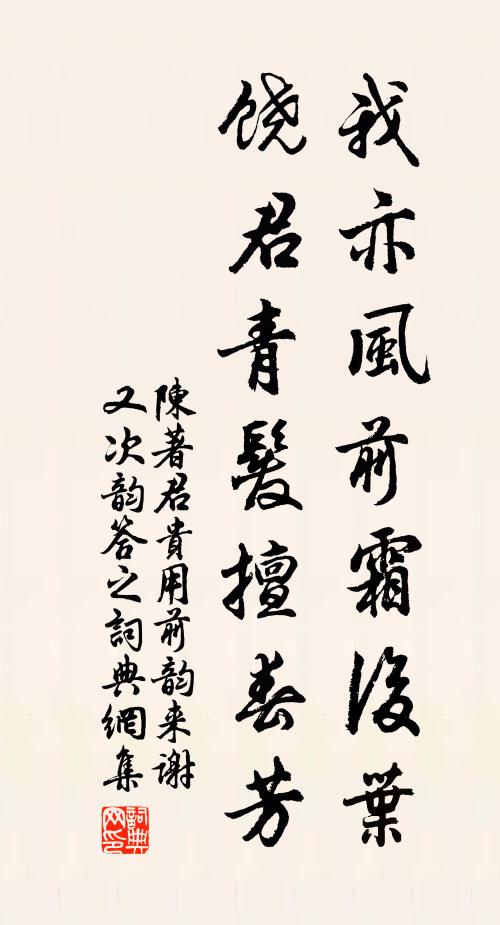 我亦風前霜後葉
饶君青髮擅春芳
陳著君貴用前韵来謝
又次韵答之詞典網集
詞典
网印